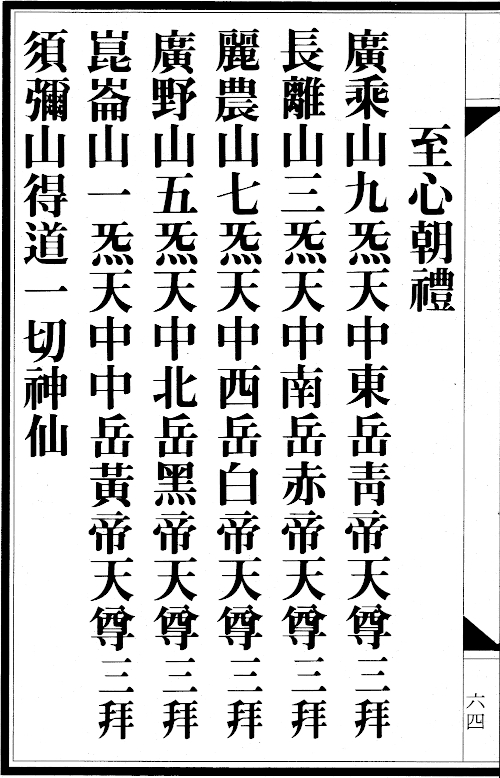 至心朝禮
廣乘山九炁天中東岳青帝天尊三拜
長離山三炁天中南岳赤帝天尊三拜
麗農山七炁天中西岳白帝天尊三拜
廣野山五炁天中北岳黑帝天尊三拜
崑崙山一炁天中中岳黃帝天尊三拜
須彌山得道一切神仙
六四